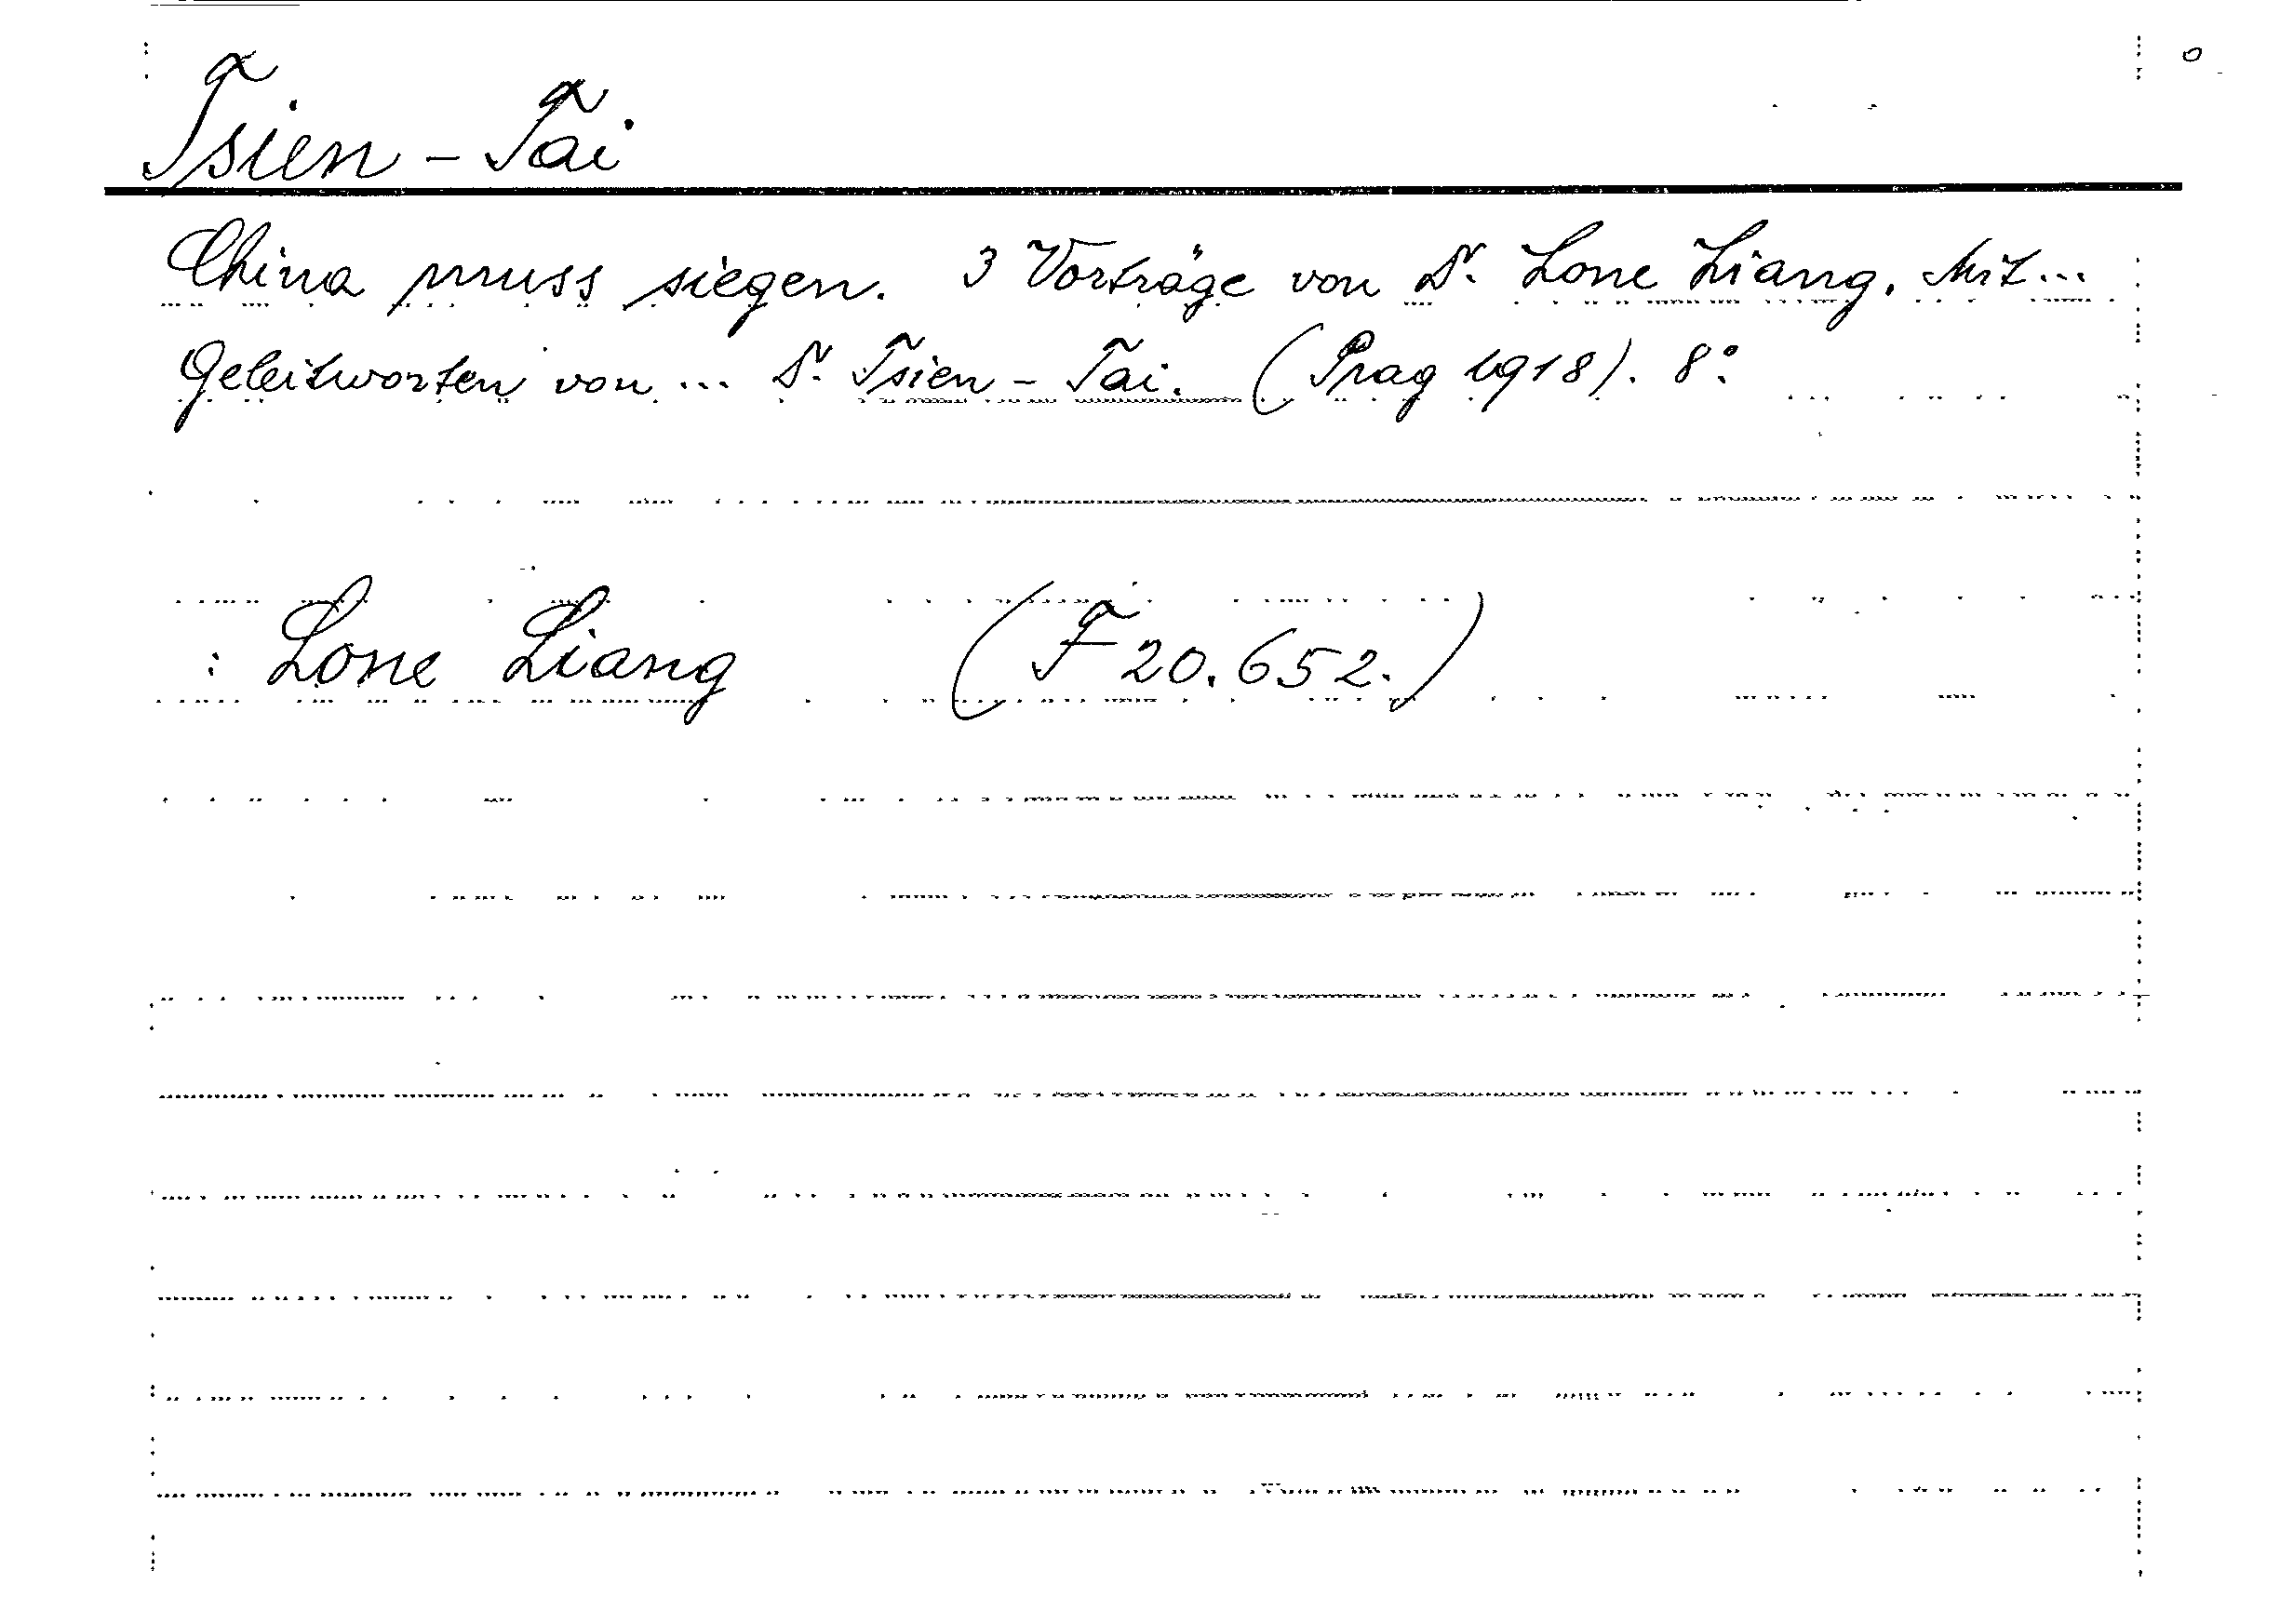 Tsien - Tai
China muss siegen. 3 Vorträge von Dr. Lone Liang. Mit...
Geleitworten von ... Dr. Tsien - Tai. (Prag 1918). 8°.
: Lone Liang (F 20.652.)